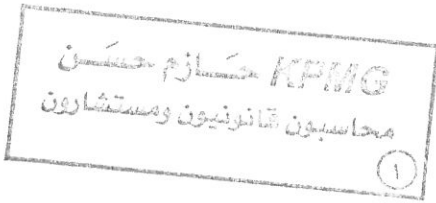 KPMG حازم حسن
محاسبون قانونيون ومستشارون
١